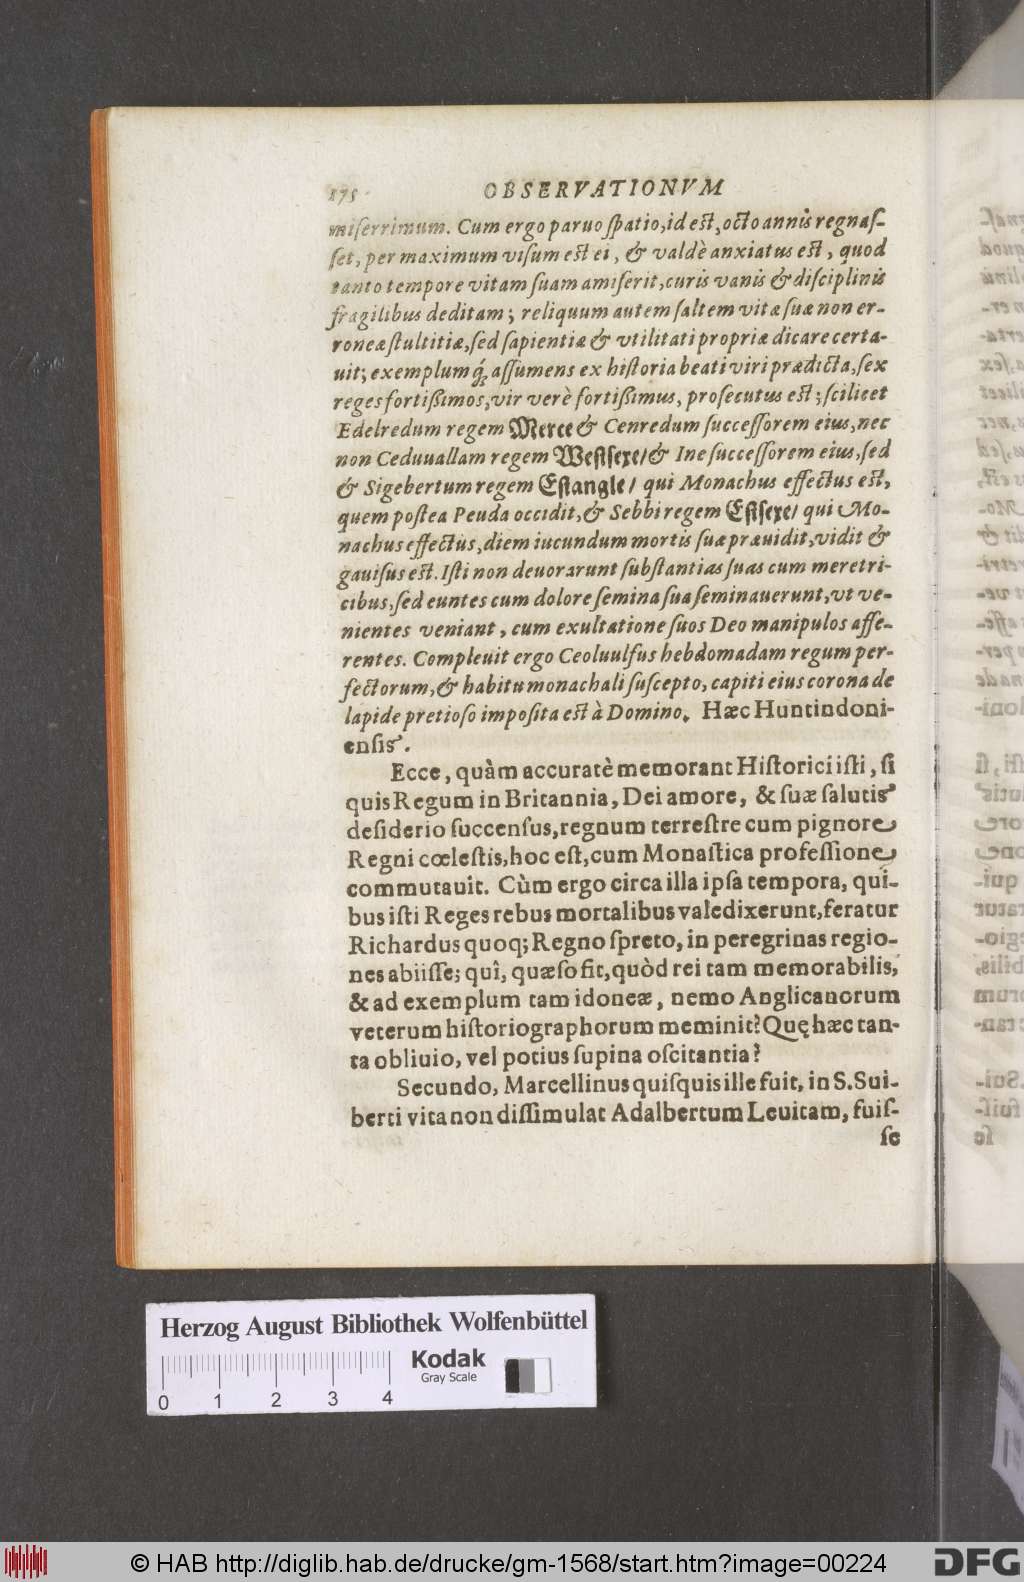 175 OBSERVATIONVM
miſerrimum. Cum ergo paruo ſpatio, id eſt, octo annis regnaſ-
ſet, per maximum viſum eſt ei, & valdè anxiatus eſt, quod
tanto tempore vitam ſuam amiſerit, curis vanis & diſciplinis
fragilibus deditam; reliquum autem ſaltem vitæ ſuæ non er-
roneæ ſtultitiæ, ſed ſapientiæ & vtilitati propriæ dicare certa-
uit; exemplumq́; aſſumens ex hiſtoria beati viri prædicta, ſex
reges fortißimos, vir verè fortißimus, proſecutus eſt; ſcilicet
Edelredum regem Merce & Cenredum ſucceſſorem eius, nec
non Ceduuallam regem Weſtſexe/ & Ine ſucceſſorem eius, ſed
& Sigebertum regem Eſtangle/ qui Monachus effectus eſt,
quem poſtea Peuda occidit, & Sebbi regem Eſtſexe/ qui Mo-
nachus effectus, diem iucundum mortis ſuæ præuidit, vidit &
gauiſus eſt. Iſti non deuorarunt ſubſtantias ſuas cum meretri-
cibus, ſed euntes cum dolore ſemina ſua ſeminauerunt, vt ve-
nientes veniant, cum exultatione ſuos Deo manipulos affe-
rentes. Compleuit ergo Ceoluulfus hebdomadam regum per-
fectorum, & habitu monachali ſuſcepto, capiti eius corona de
lapide pretioſo impoſita eſt à Domino. Hæc Huntindoni-
enſis.
Ecce, quàm accuratè memorant Hiſtorici iſti, ſi
quis Regum in Britannia, Dei amore, & ſuæ ſalutis
deſiderio ſuccenſus, regnum terreſtre cum pignore
Regni cœleſtis, hoc eſt, cum Monaſtica profeſſione
commutauit. Cùm ergo circa illa ipſa tempora, qui-
bus iſti Reges rebus mortalibus valedixerunt, feratur
Richardus quoq; Regno ſpreto, in peregrinas regio-
nes abiiſſe; quî, quæſo fit, quòd rei tam memorabilis,
& ad exemplum tam idoneæ, nemo Anglicanorum
veterum hiſtoriographorum meminit? Quę hæc tan-
ta obliuio, vel potius ſupina oſcitantia?
Secundo, Marcellinus quiſquis ille fuit, in S. Sui-
berti vita non diſſimulat Adalbertum Leuitam, fuiſ-
ſe
Herzog August Bibliothek Wolfenbüttel
Kodak
Gray Scale
0 1 2 3 4
© HAB http://diglib.hab.de/drucke/gm-1568/start.htm?image=00224
DFG